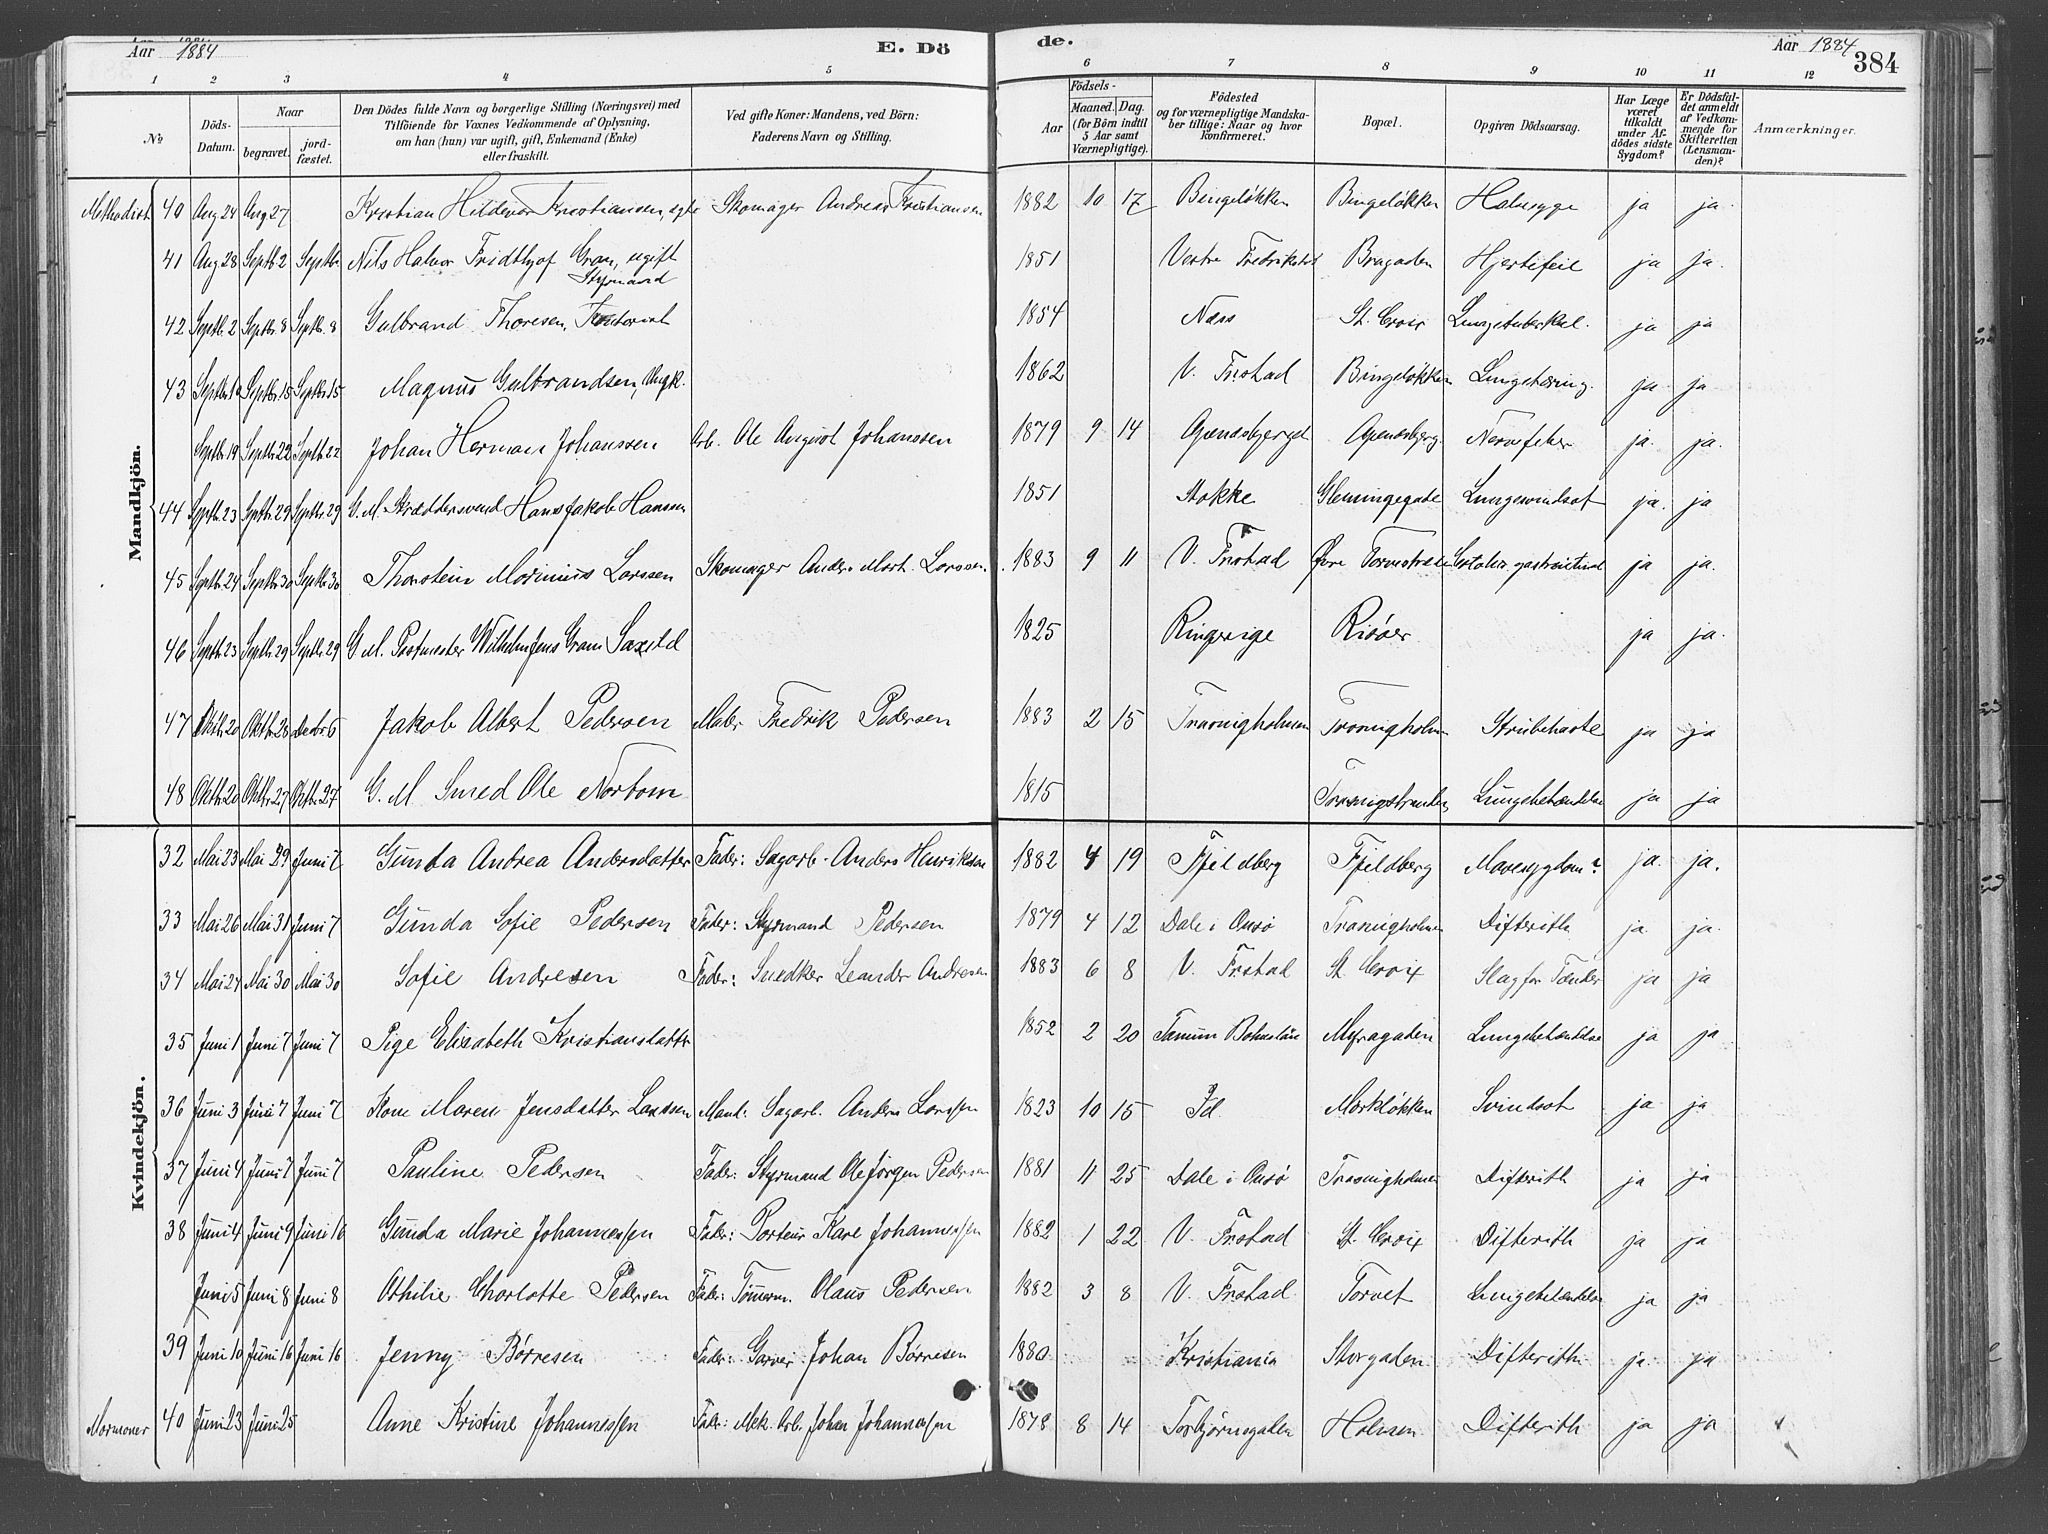 Aar 1884 E. Dö
de. Aar 1884 384
1 2 3 4 5 6 7 8 9 10 11 12
No Döds-Datum. Naar begravet. jord-fæstet. Den Dödes fulde Navn og borgerlige Stilling (Næringsvei) med Tilföiende for Voxnes Vedkommende af Oplysning, om han (hun) var ugift, gift, Enkemand (Enke) eller fraskilt. Ved gifte Koner: Mandens, ved Börn: Faderens Navn og Stilling. Födsels- Aar Maaned. Dag. (for Börn indtil 5 Aar samt Værnepligtige). Födested og for værnepligtige Mandskaber tillige: Naar og hvor konfirmeret. Bopæl. Opgiven Dödsaarsag. Har Læge været tilkaldt under Afdödes sidste Sygdom? Er Dödsfaldet anmeldt af Vedkommende for Skifteretten (Lensmanden)? Anmærkninger.
Mandkjön.
Methodist 40 Aug 24 Aug 27 Kristian Hildevar Kristiansen, egte Skomager Andreas Kristiansen 1882 10 17 Bingeløkken Bingeløkken Halssyge ja ja.
41 Aug 28 Septb 2 Septbr Nils Halvor Fridthjof Gram, ugift Styrmand 1851 Vestre Fredrikstad Brogaden Hjertefeil ja ja.
42 Septb. 2 Septbr 8 Septbr. 8 Gulbrand Thoresen, 1854 Næss St. Croix Lungetuberkul. ja ja
43 Septbr Septbr 15 Septbr 15 Magnus Gulbrandsen, Ungk. 1862 V. Frstad Bingeløkken Lungetæring. ja ja
Septbr 19 Septbr 22 Septbr 22 Johan Herman Johanssen Arb. Ole August Johanssen 1879 9 14 Apenæsbjerget Apenæsbjerg Nervefeber ja. ja.
44 Septbr 23 Septbr 29 Septbr 29 G. M. Skræddersvend Hans Jakob Hanssen 1851 Stokke Glemmingegade Lungesvindsot ja. ja
45 Septbr 24 Septbr 30 Septbr 30 Thorstein Marinius Larssen Skomager Anders Mart. Larssen. 1883 9 11 V. Frstad Øvre Torvestræde ja ja.
46 Septbr 23 Septbr 29 Septbr 29 G. M. Postmester Wilhelm Jens Gram Saxild 1825 Ringerige Risøer ja ja.
47 Oktbr 20 Oktbr 28 Decbr 6 Jakob Albert Pedersen Maler Fredrik Pedersen 1883 2 15 Trosvigholmen Trosvigholm Strubehoste ja ja
48 Oktbr 20 Oktbr 27 Oktbr 27 G. M. Smed Ole Nortom 1815 Trosvigstranden Lungebetændelse ja ja
Kvindekjön.
32 Mai 23 Mai 29 Juni 7 Gunda Andrea Andersdatter Fader: Sagarb. Anders Henriksen 1882 4 19 Fjeldberg Fjeldberg Mavesygdom? ja. ja.
33 Mai 26 Mai 31 Juni 7 Gunda Sofie Pedersen Fader: Styrmand Pedersen 1879 4 12 Dale i Onsø Trosvigholmen Difterith ja ja.
34 Mai 27 Mai 30 Mai 30 Sofie Andresen Fader: Snedker Leander Andresen 1883 6 8 V. Frstad St. Croix Slag for Tænder ja ja
35 Juni 1 Juni 7 Juni 7 Pige Elisabeth Kristiansdattr 1852 2 20 Tanum Bohuslän Myragaden Lungebetændelse ja ja
36 Juni 3 Juni 7 Juni 7 Kone Maren Jensdatter Larssen Mand: Sagarb. Anders Larssen 1823 10 15 Id Mørkløkken Svindsot ja ja
37 Juni 4 Juni 7 Juni 7 Pauline Pedersen Fader: Styrmand Ole Jørgen Pedersen 1881 11 25 Dale i Onsø Trosvigholmen Difterith ja ja
38 Juni 4 Juni 9 Juni 16 Gunda Marie Johannessen Fader: Porteur Karl Johannessen 1882 1 22 V. Frstad St. Croix Difterith ja ja
Juni 5 Juni 8 Juni 8 Othilie Charlotte Pedersen Fader: Tømmerm. Olaus Pedersen 1882 3 8 V. Frstad. Torvet Lungebetændelse ja ja
39 Juni 10 Juni 16 Juni 16 Jenny Børresen Fader: Garver Johan Børresen 1880 Kristiania Storgaden Difterith ja ja
Mormoner 40 Juni 23 Juni 25 Anne Kristine Johannessen Fader: Mek. Arb. Johan Johannessen 1878 8 14 Torbjørnsgaden Holmen Difterith ja ja